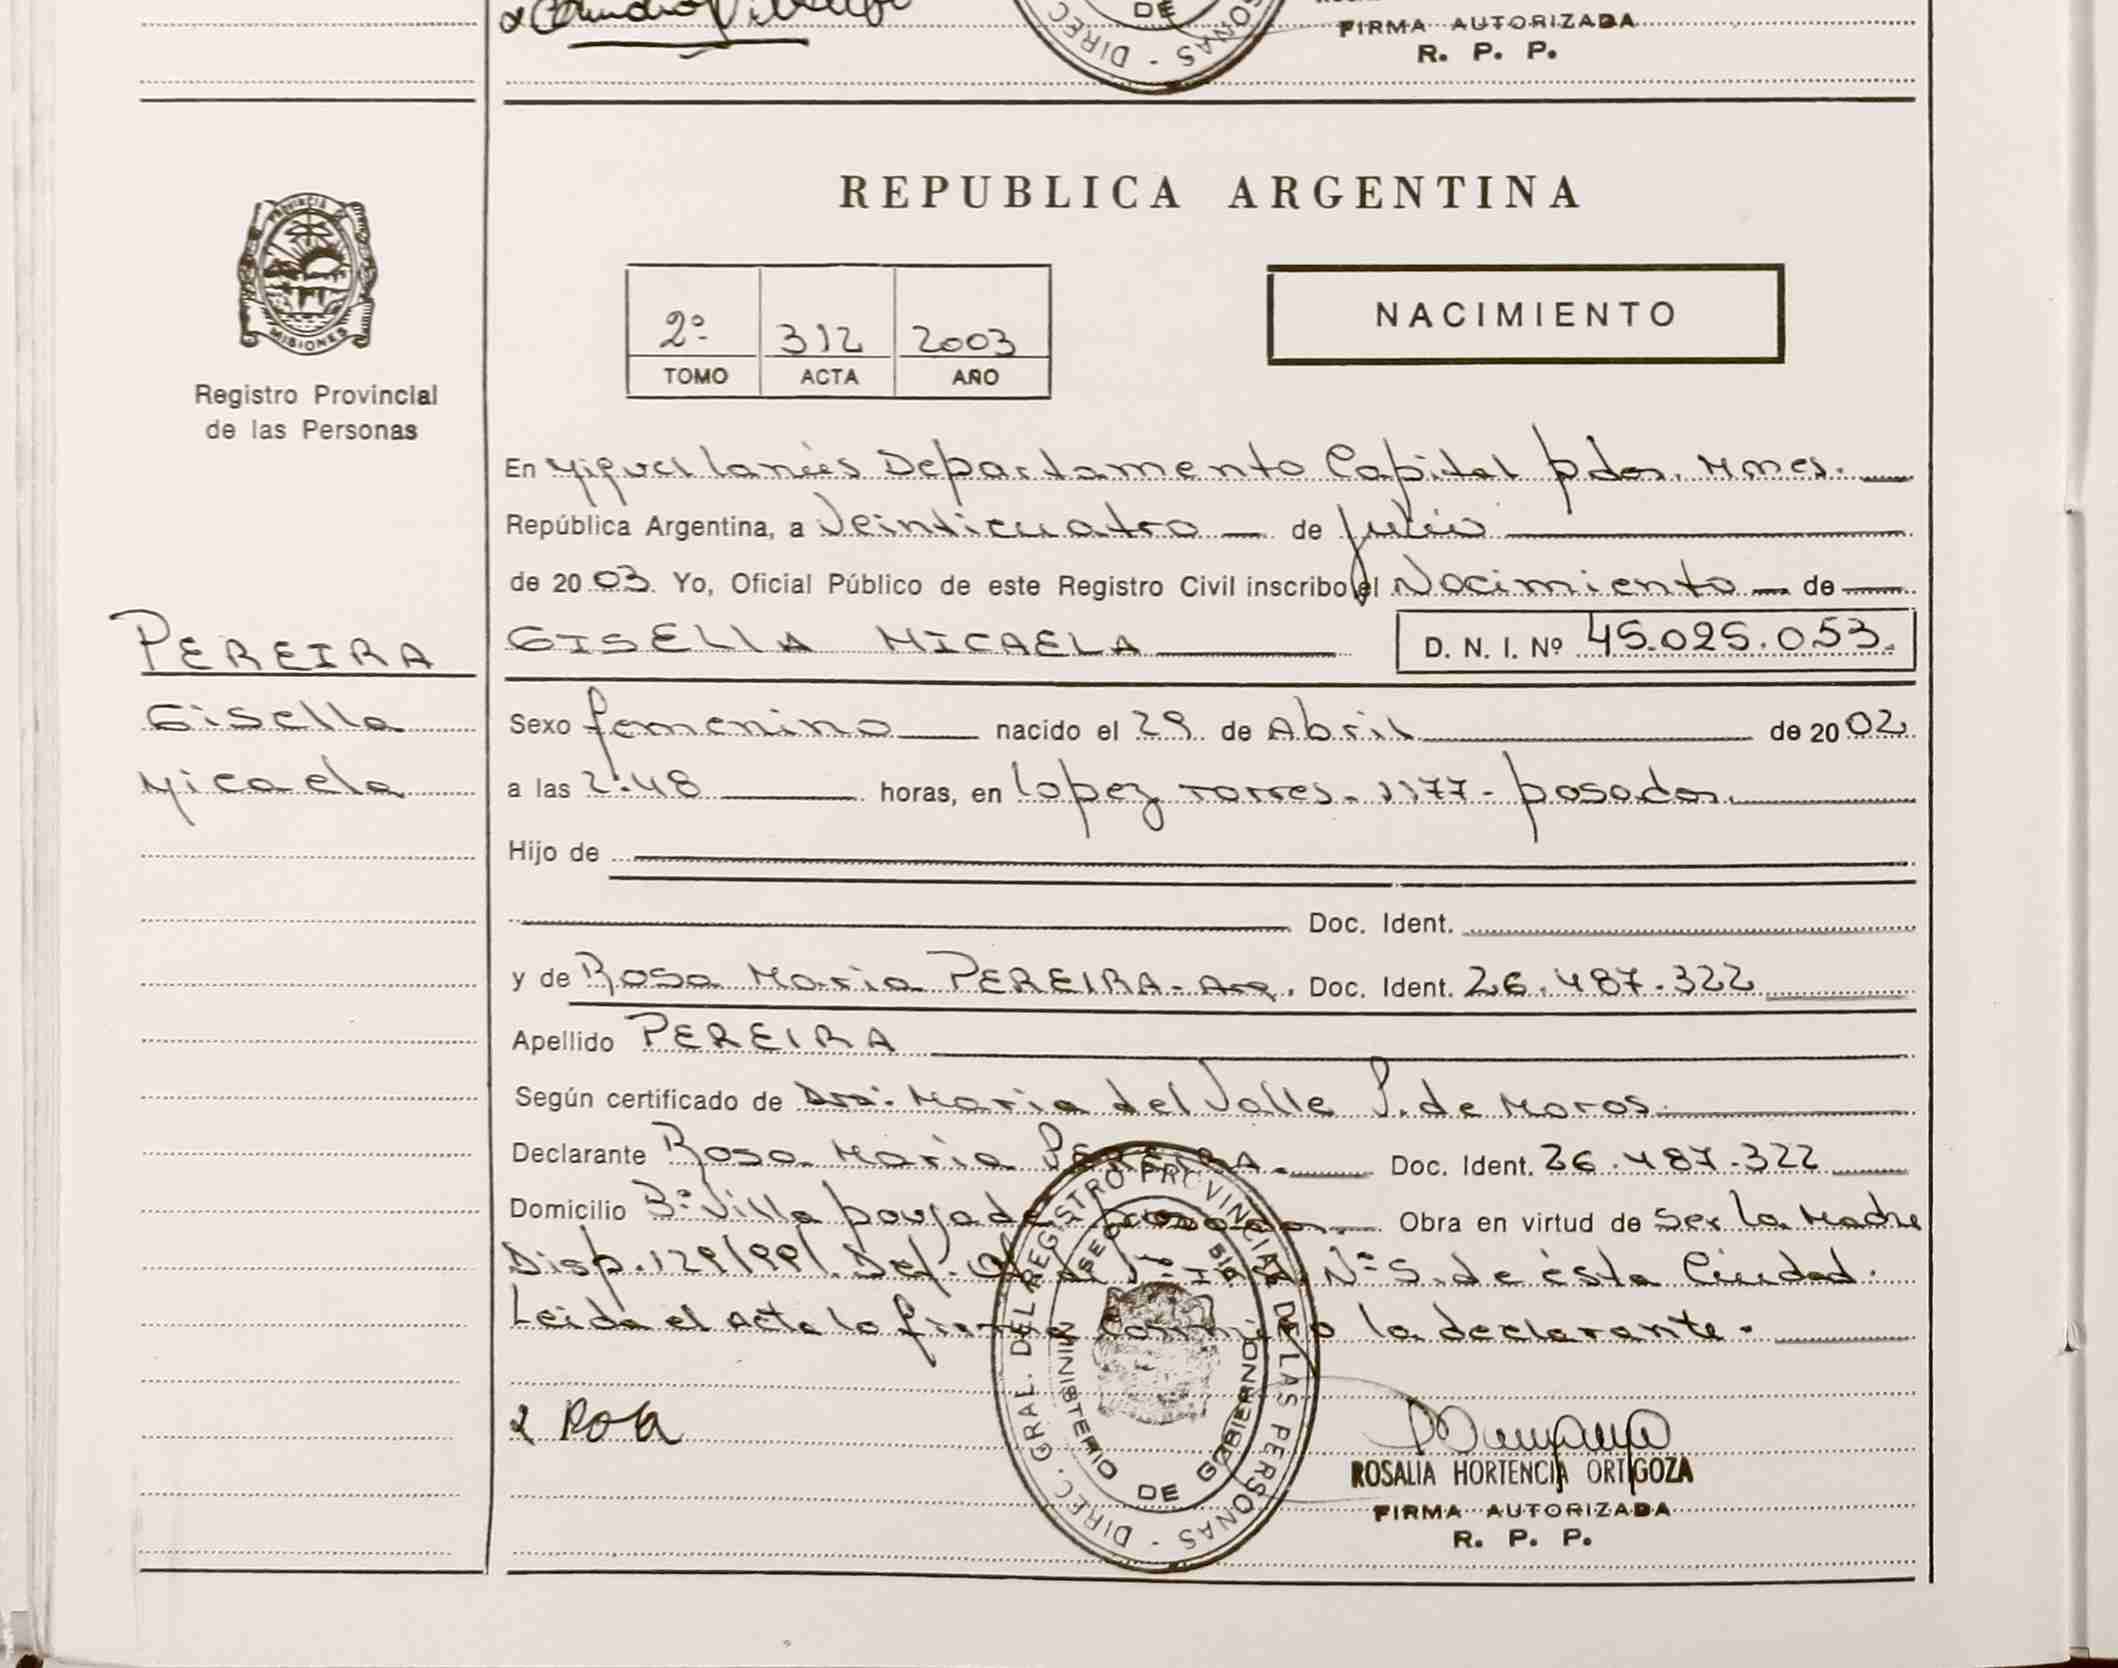 DE
DIREC
SONAS
FIRMA AUTORIZADA
R. P. P.
PROVINCIA DE
MISIONES
Registro Provincial
de las Personas
REPUBLICA ARGENTINA
2º 312 2003
TOMO ACTA AÑO
NACIMIENTO
En Miguel Lanús Departamento Capital pdas. Mnes.
República Argentina, a Veinticuatro de Julio
de 2003. Yo, Oficial Público de este Registro Civil inscribo el Nacimiento de
PEREIRA
Gisella
Micaela
GISELLA MICAELA D. N. I. Nº 45.025.053.
Sexo femenino nacido el 29 de Abril de 2002
a las 2:48 horas, en Lopez Torres. 1177- posadas.
Hijo de
Doc. Ident.
y de Rosa Maria PEREIRA. Arg. Doc. Ident. 26.487.322
Apellido PEREIRA
Según certificado de Dra. Maria del Valle P. de Moros.
Declarante Rosa Maria PEREIRA. Doc. Ident. 26.487.322
Domicilio Bº Villa poujade posadas. Obra en virtud de Ser la Madre
Disp. 129/99/. Def. Of. Nº 5. de ésta Ciudad.
Leida el Acta la firma conmigo la declarante.
DIREC. GRAL. DEL REGISTRO PROVINCIAL DE LAS PERSONAS
MINISTERIO DE GOBIERNO
ROSALIA HORTENCIA ORTIGOZA
FIRMA AUTORIZADA
R. P. P.